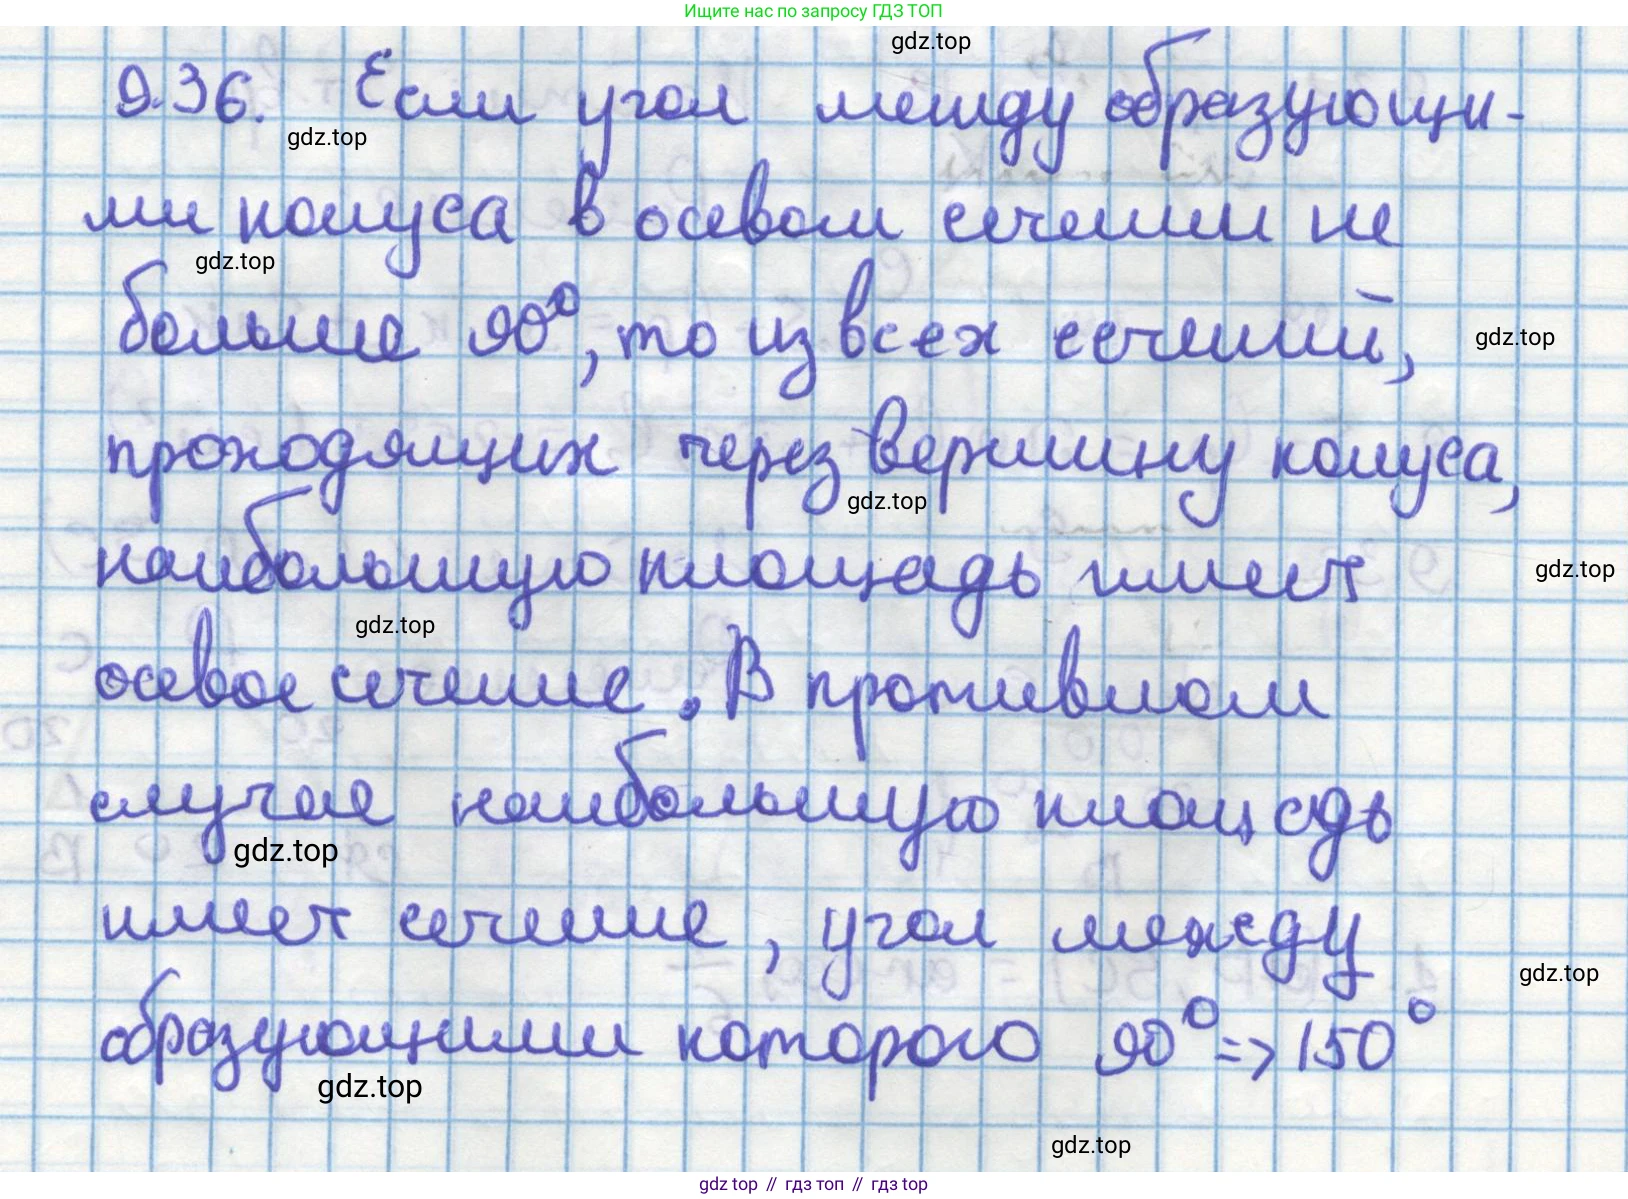 Ищите нас по запросу ГДЗ ТОП
gdz.top
9.36. Если угол между образующи-
gdz.top
ми конуса в осевом сечении не
gdz.top
больше 90°, то из всех сечений,
gdz.top
проходящих через вершину конуса,
gdz.top
наибольшую площадь имеет
gdz.top
gdz.top
осевое сечение. В противном
случае наибольшую площадь
gdz.top
имеет сечение, угол между
gdz.top
образующими которого 90° => 150°
gdz.top
gdz.top
gdz top // гдз топ // гдз top